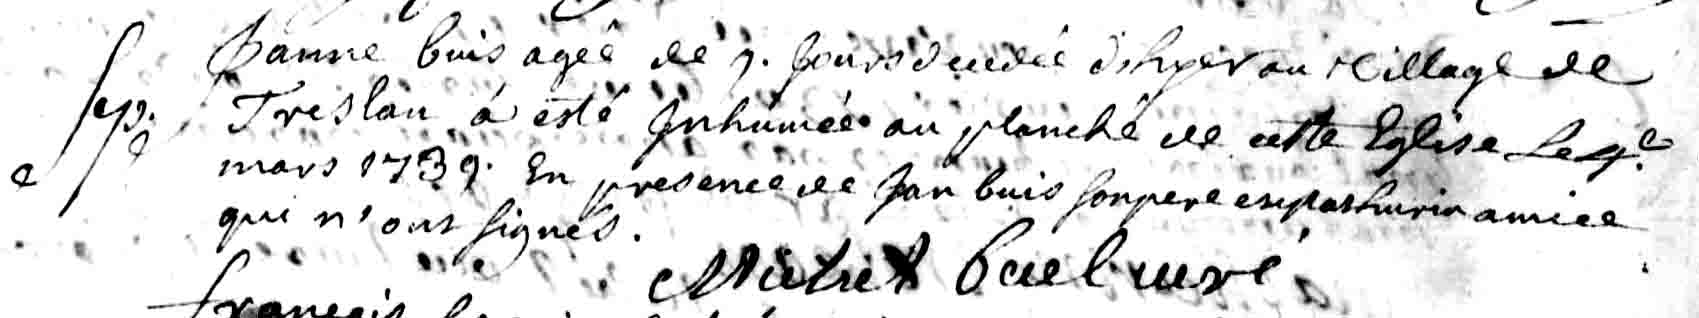 Janne buis agée de 9. Jours decedée d'hyer au village de
Sep. Treslan a esté Inhumée au planché de cette Eglise Le 4.e
mars 1739. En presence de Jan buis son pere et mathurin amice
qui n'ont signés.
Michel curé
françois